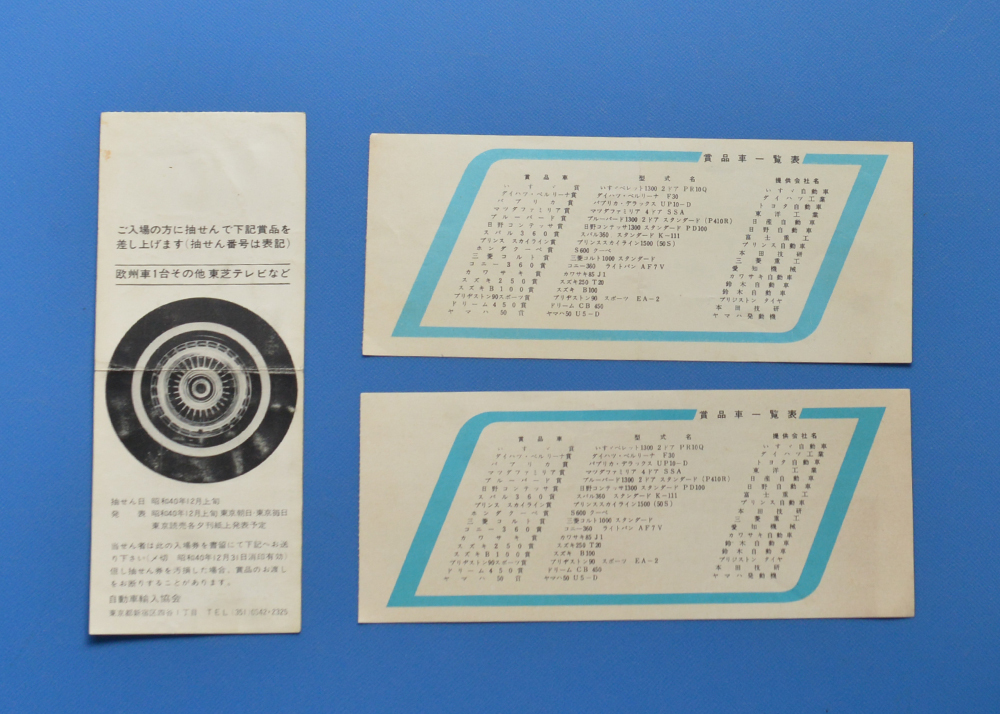 ご入場の方に抽せんで下記賞品を
差し上げます(抽せん番号は表記)
欧州車1台その他 東芝テレビなど
抽せん日 昭和40年12月上旬
発 表 昭和40年12月上旬 東京朝日・東京毎日
東京読売各夕刊紙上発表予定
当せん者は此の入場券を書留にて下記へお送
り下さい(〆切 昭和40年12月31日消印有効)
但し抽せん券を汚損した場合、賞品のお渡し
をお断りすることがあります。
自動車輸入協会
東京都新宿区四谷1丁目 TEL(351)
賞品車一覧表
賞品車 型式名 提供会社名
いすゞ賞 いすゞベレット1300 2ドア PR10Q いすゞ自動車
ダイハツ・ベルリーナ賞 ダイハツ・ベルリーナ F30 ダイハツ工業
パブリカ賞 パブリカ・デラックス UP10-D トヨタ自動車
マツダファミリア賞 マツダファミリア 4ドア SSA 東洋工業
ブルーバード賞 ブルーバード1300 2ドア スタンダード(P410R) 日産自動車
日野コンテッサ賞 日野コンテッサ1300 スタンダード PD100 日野自動車
スバル360賞 スバル360 スタンダード K-111 富士重工
プリンス スカイライン賞 プリンススカイライン1500 (50S) プリンス自動車
ホンダクーペ賞 S600 クーペ 本田技研
三菱コルト賞 三菱コルト1000 スタンダード 三菱重工
コニー360賞 コニー360 ライトバン AF7V 愛知機械
カワサキ賞 カワサキ85 J1 カワサキ自動車
スズキ250賞 スズキ250 T20 鈴木自動車
スズキB100賞 スズキ B100 鈴木自動車
ブリヂストン90スポーツ賞 ブリヂストン90 スポーツ EA-2 ブリジストンタイヤ
ドリーム450賞 ドリーム CB450 本田技研
ヤマハ50賞 ヤマハ50 U5-D ヤマハ発動機
賞品車一覧表
賞品車 型式名 提供会社名
いすゞ賞 いすゞベレット1300 2ドア PR10Q いすゞ自動車
ダイハツ・ベルリーナ賞 ダイハツ・ベルリーナ F30 ダイハツ工業
パブリカ賞 パブリカ・デラックス UP10-D トヨタ自動車
マツダファミリア賞 マツダファミリア 4ドア SSA 東洋工業
ブルーバード賞 ブルーバード1300 2ドア スタンダード(P410R) 日産自動車
日野コンテッサ賞 日野コンテッサ1300 スタンダード PD100 日野自動車
スバル360賞 スバル360 スタンダード K-111 富士重工
プリンス スカイライン賞 プリンススカイライン1500 (50S) プリンス自動車
ホンダクーペ賞 S600 クーペ 本田技研
三菱コルト賞 三菱コルト1000 スタンダード 三菱重工
コニー360賞 コニー360 ライトバン AF7V 愛知機械
カワサキ賞 カワサキ85 J1 カワサキ自動車
スズキ250賞 スズキ250 T20 鈴木自動車
スズキB100賞 スズキ B100 鈴木自動車
ブリヂストン90スポーツ賞 ブリヂストン90 スポーツ EA-2 ブリジストンタイヤ
ドリーム450賞 ドリーム CB450 本田技研
ヤマハ50賞 ヤマハ50 U5-D ヤマハ発動機